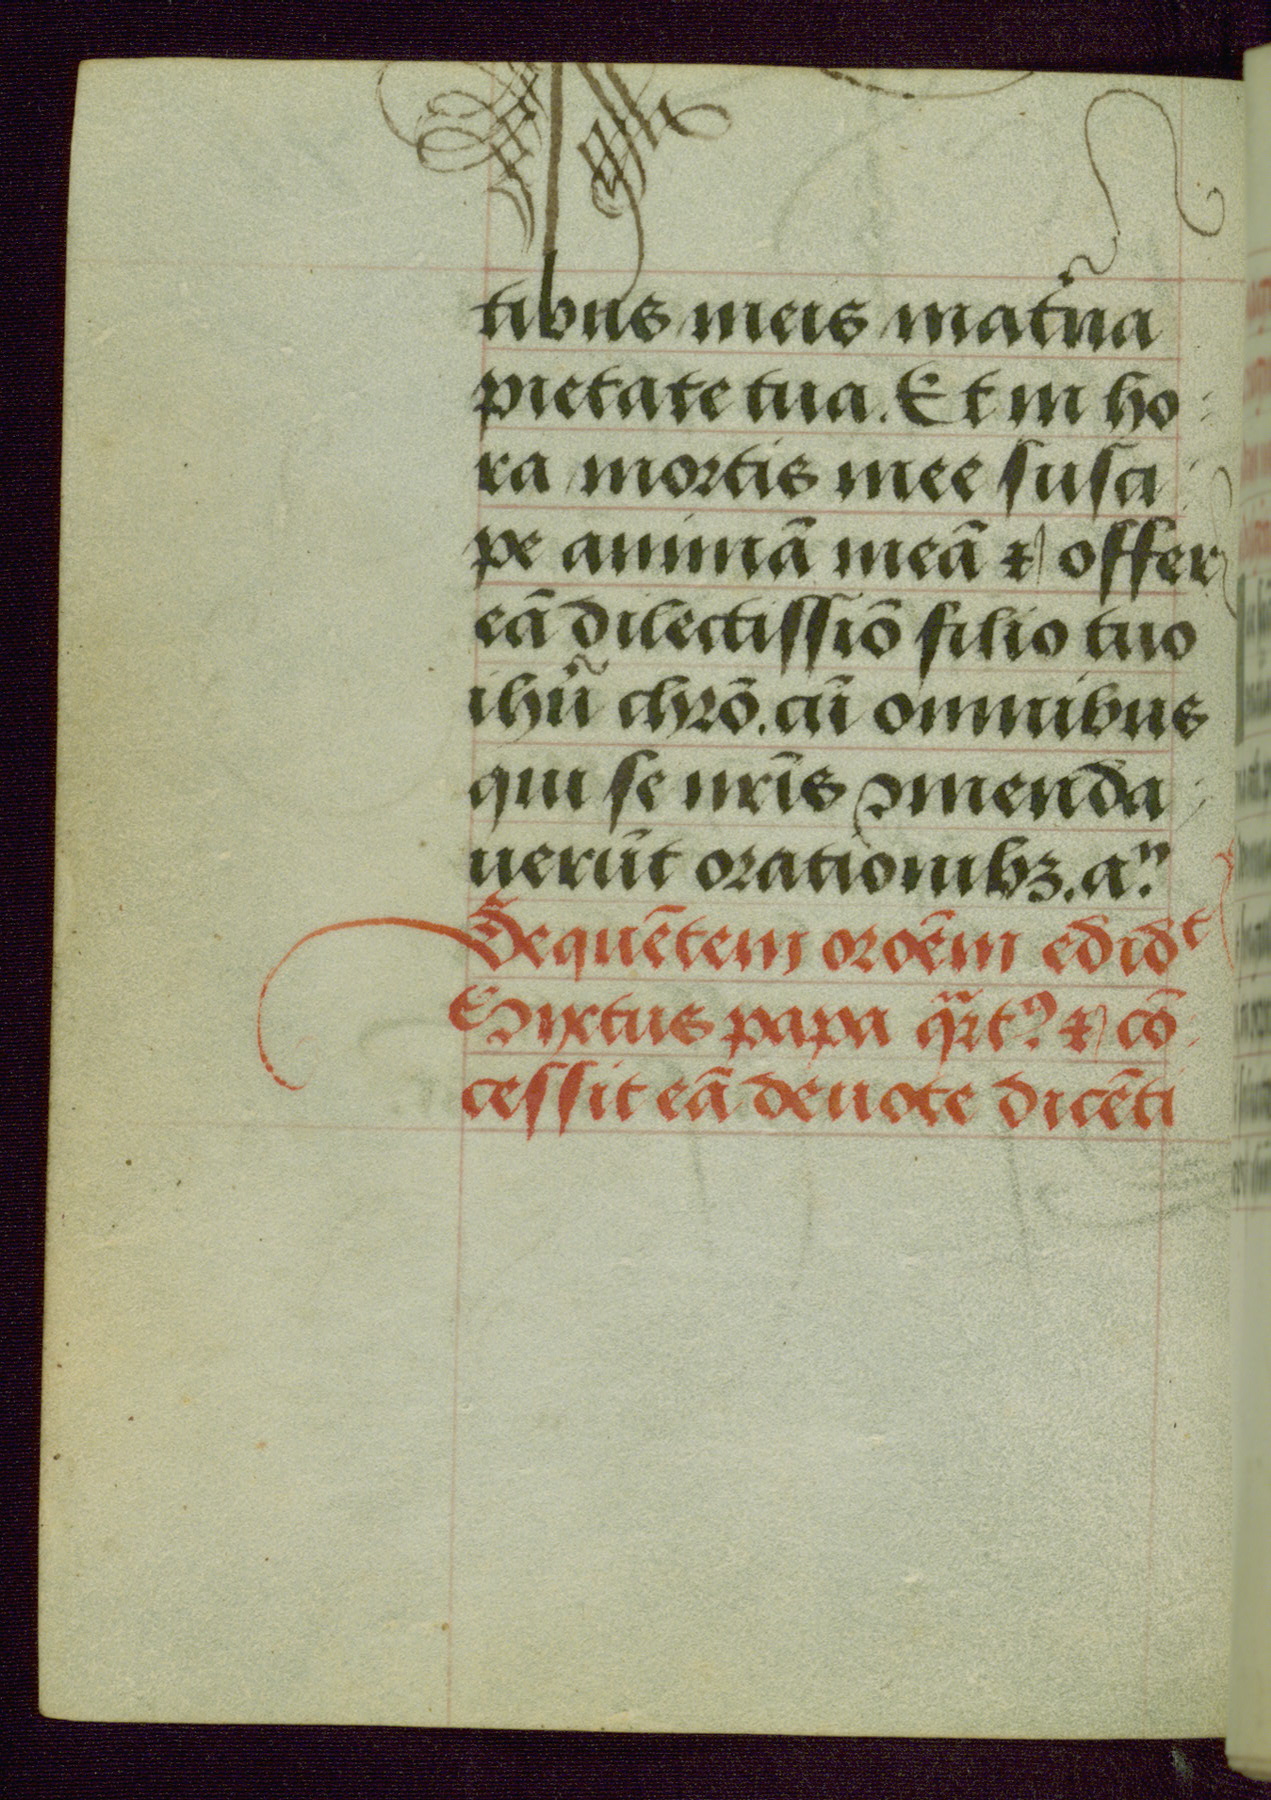 tibus meis mat̃na
pietate tua. Et in ho
ra mortis mee susci
pe animā meā ⁊ offer
eā dilectissiō filio tuo
ihũ chrō. cū omnibus
qui se nr̄is ꝯmenda
uerūt orationibꝫ. aⁿ.
Sequētem oroēm edidᵗ
Sixtus papa q̃rtꝰ ⁊ cō
cessit eā deuote dicēti